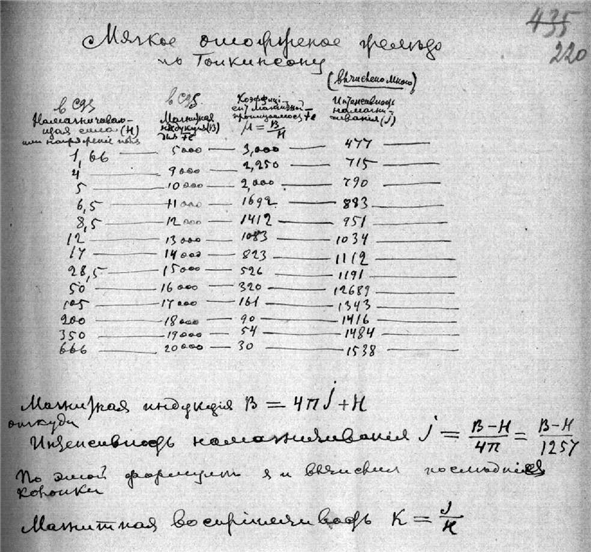 435
220
Мягкое отожженое железо
по Гопкинсону
(вычислено мною)
в CGS
Намагничиваю-
щая сила (H)
или напряжение поля
в CGS
Магнитная
индукція (B)
Коэффиці-
ент магнитной
проницаемости
μ = B/H
Интенсивность
намагни-
чиванія (J)
1,66 — 5000 — 3,000 — 477
4 — 9000 — 2,250 — 715
5 — 10000 — 2,000 — 790
6,5 — 11000 — 1692 — 883
8,5 — 12000 — 1412 — 951
12 — 13000 — 1083 — 1034
17 — 14000 — 823 — 1112
28,5 — 15000 — 526 — 1191
50 — 16000 — 320 — 12689
105 — 17000 — 161 — 1343
200 — 18000 — 90 — 1416
350 — 19000 — 54 — 1484
666 — 20000 — 30 — 1538
Магнитная индукція B = 4πJ + H
откуда
Интенсивность намагничиванія J = B−H/4π = B−H/1257
По этой формулѣ я и вычислил последнія
колонки
Магнитная восприимчивость K = J/H